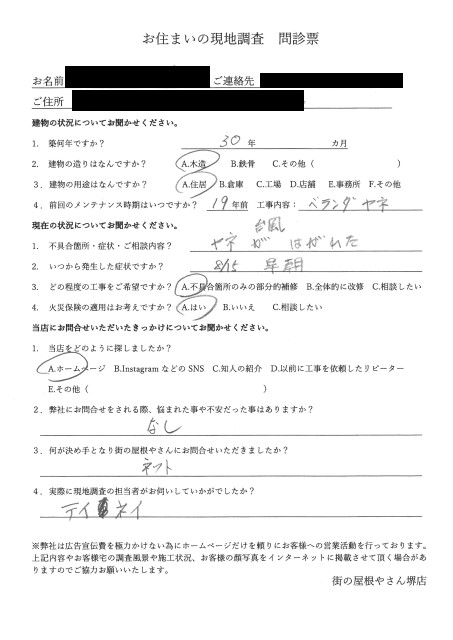 お住まいの現地調査　問診票
お名前　ご連絡先
ご住所
建物の状況についてお聞かせください。
1. 築何年ですか？　30 年　カ月
2. 建物の造りはなんですか？　A.木造　B.鉄骨　C.その他（　　　）
3. 建物の用途はなんですか？　A.住居　B.倉庫　C.工場　D.店舗　E.事務所　F.その他
4. 前回のメンテナンス時期はいつですか？　19 年前　工事内容：ベランダヤネ
現在の状況についてお聞かせください。
台風
1. 不具合箇所・症状・ご相談内容？　ヤネが はがれた
2. いつから発生した症状ですか？　8/15　早朝
3. どの程度の工事をご希望ですか？　A.不具合箇所のみの部分的補修　B.全体的に改修　C.相談したい
4. 火災保険の適用はお考えですか？　A.はい　B.いいえ　C.相談したい
当店にお問合せいただいたきっかけについてお聞かせください。
1. 当店をどのように探しましたか？
A.ホームページ　B.Instagram などの SNS　C.知人の紹介　D.以前に工事を依頼したリピーター
E.その他（　　　）
2. 弊社にお問合せをされる際、悩まれた事や不安だった事はありますか？
なし
3. 何が決め手となり街の屋根やさんにお問合せいただきましたか？
ネット
4. 実際に現地調査の担当者がお伺いしていかがでしたか？
テイネイ
※弊社は広告宣伝費を極力かけない為にホームページだけを頼りにお客様への営業活動を行っております。
上記内容やお客様宅の調査風景や施工状況、お客様の顔写真をインターネットに掲載させて頂く場合があ
りますのでご協力お願いいたします。
街の屋根やさん堺店